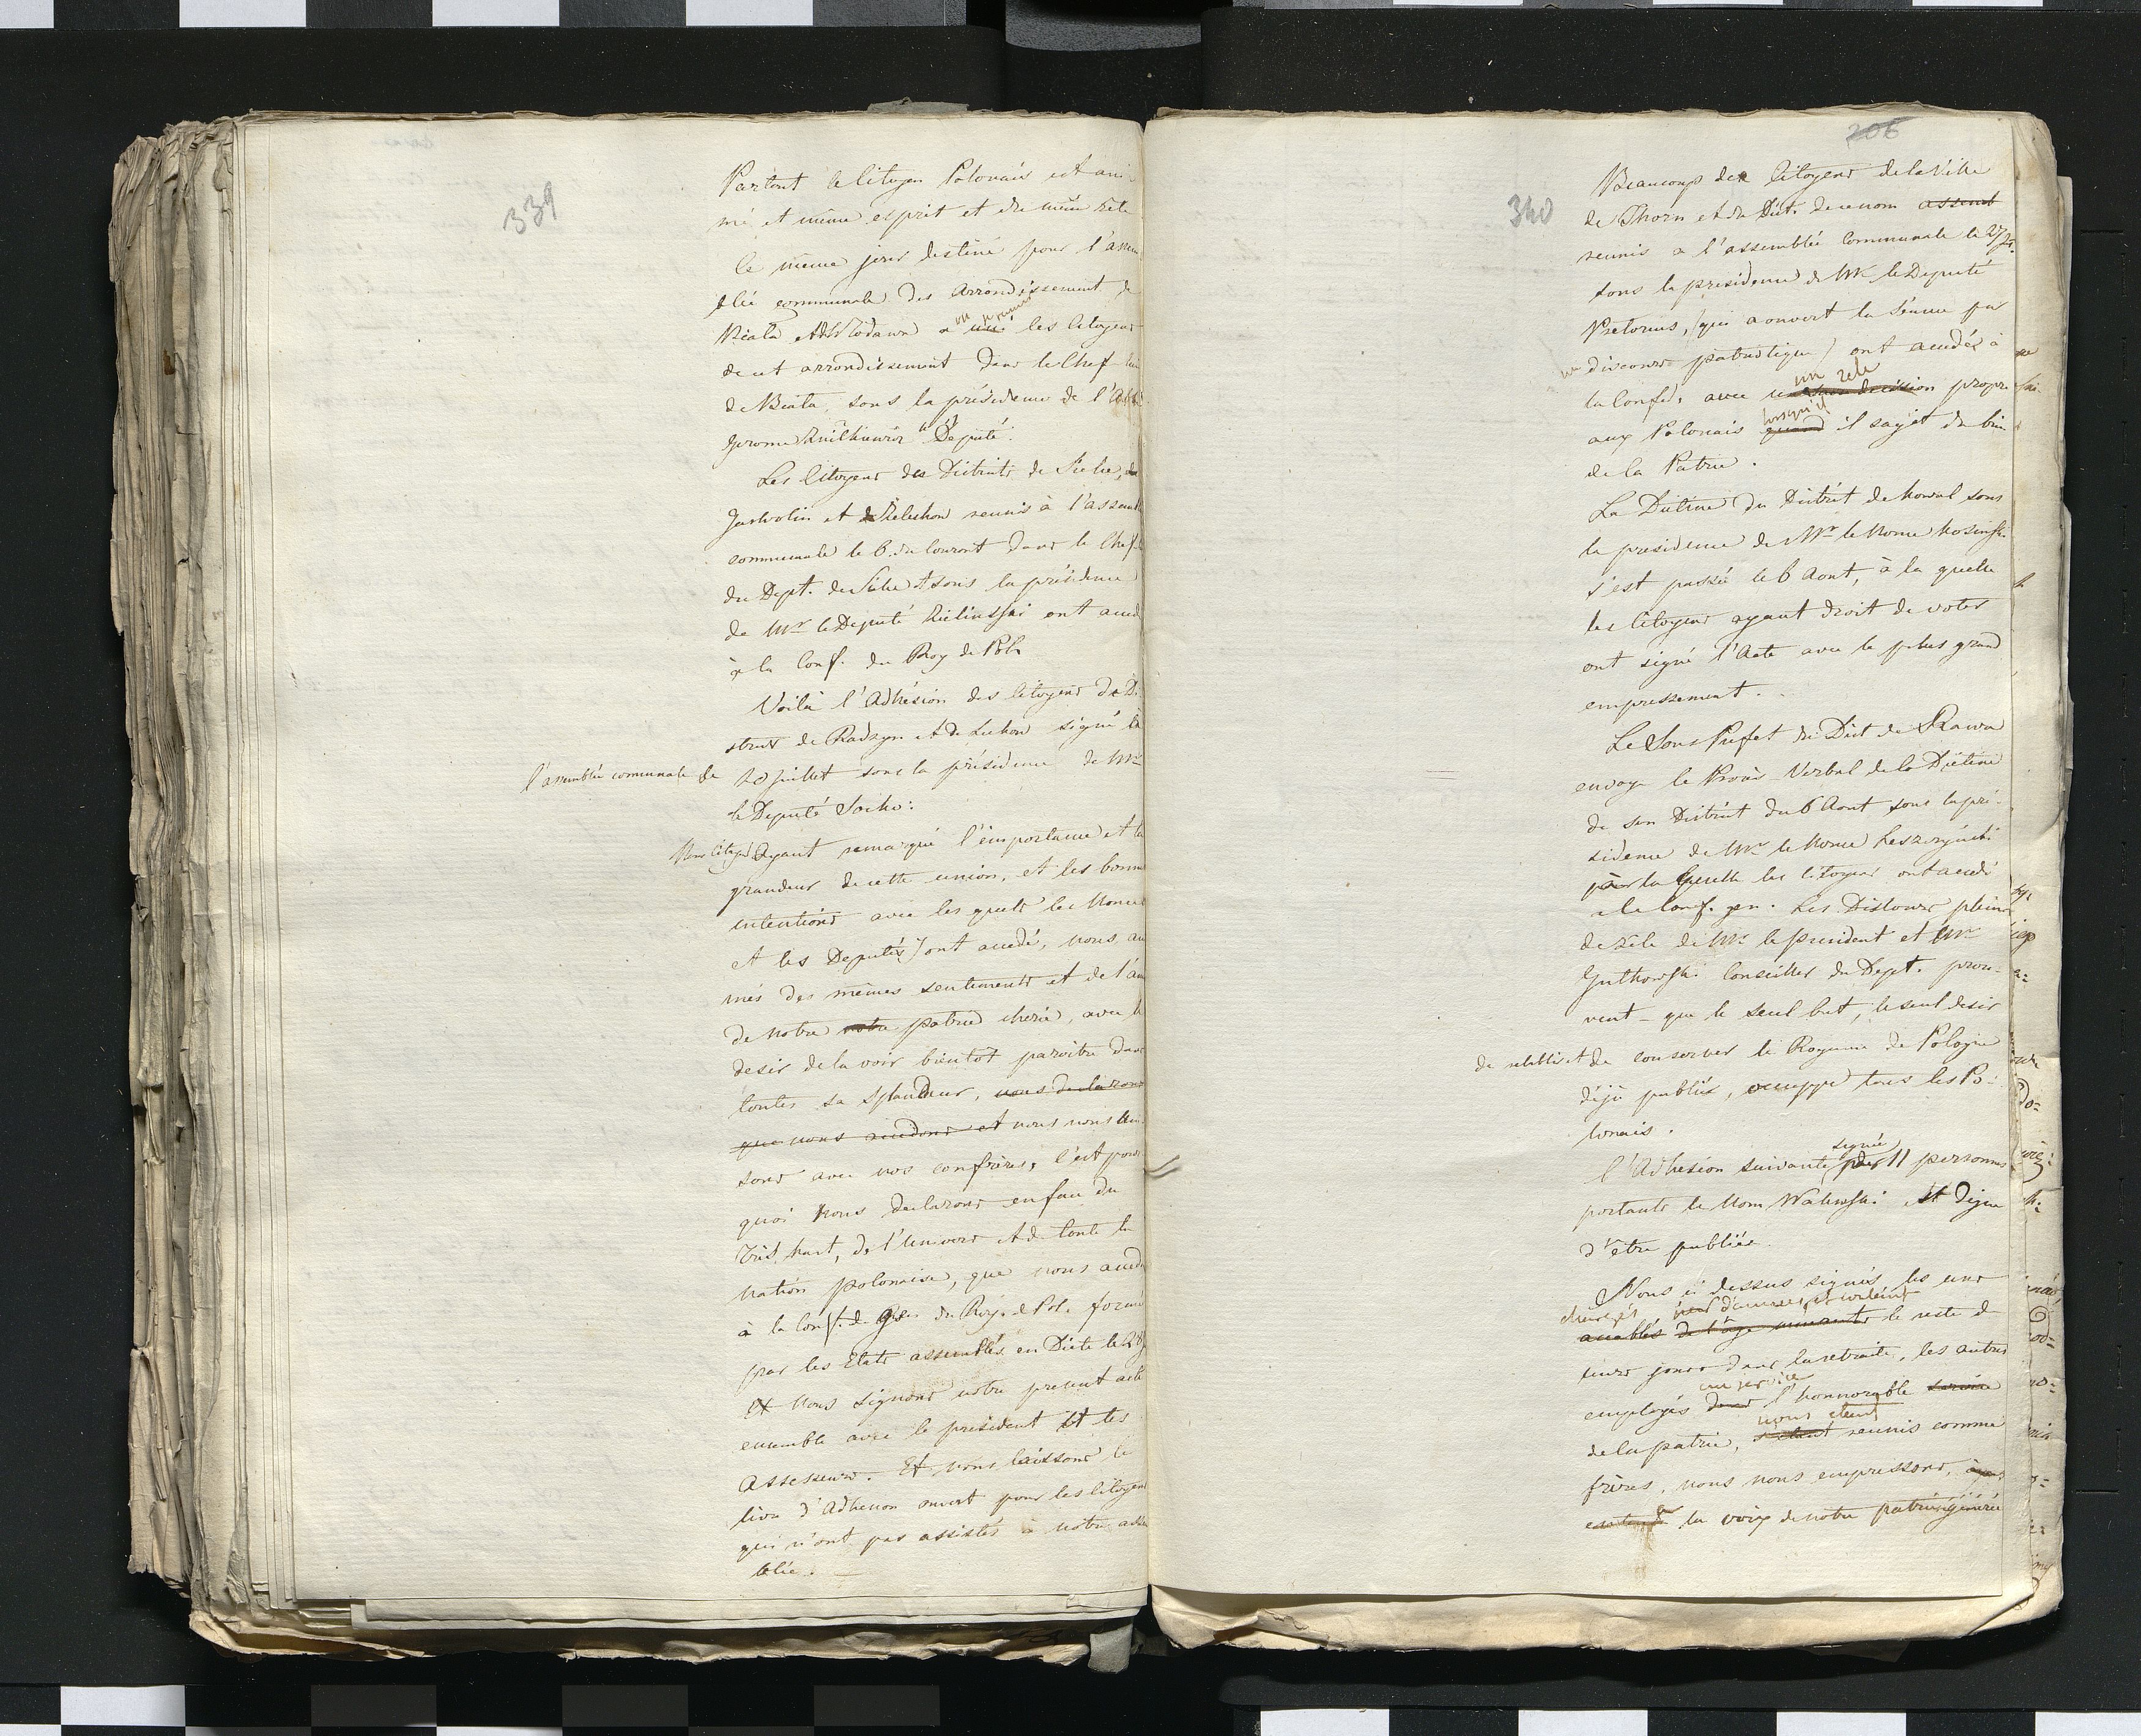 339
Partout le Citoyen Polonais est ani-
mé et même esprit et du même zele
le même jour destiné pour l'assem
blée communale des Arrondissement de
Biala et de Wlodawa a les Citoyens
de cet arrondissement dans le Chef lieu
de Biala, sous la présidence de l'Abbé
Deputé.
Les Citoyens des Districts de Sielce, de
Garwolin et de Zelechow reunis à l'assemb
communale le 6. du Courant dans le Chef l
du Dept. de Sielce et sous la présidence
de Mr le Deputé Zielinski ont acced
à la Conf. du Roy. de Pol.
Voilà l'Adhésion des Citoyens de Di
stricts de Radzyn et de Lukow signé à
l'assemblée communale de 20 juillet sous la présidence de Mr
le Deputé
Nous Citoyens Ayant remarqué l'importance et la
grandeur de cette union, et les bonnes
intentions avec les quels les Nonces
et les Deputés y ont accedé, nous, ani
més des mêmes sentiments et de l'am
de notre notre patrie cherie, avec le
desir de la voir bientot paroitre dans
toutes sa splendeur, nous declarons
que nous accedons et nous nous unis
sons avec nos confrères, c'est pour
quoi nous declarons en face du
Très haut, de l'Univers et de toute la
nation polonaise, que nous acced
à la Conf. de Gen. du Roy. de Pol. formé
par les Etats assemblés en Diète le 28 j
Et nous signons notre present acte
ensemble avec le president et les
Assesseurs. Et nous laissons le
livre d'Adhesion ouvert pour les Citoyens
qui n'ont pas assistés à notre assem
blée.
206
340
Beaucoup des Citoyens de la Ville
de Thorn et du Dist. de ce nom assemb
reunis a l'assemblée Communale le 27 jt.
sous la presidence de Mr le Deputé
Pretorius, (qui a ouvert la séance par
un discours patriotique) ont accedés à
un zele
la Confed. avec une decision propre
lorsqu'il
aux Polonais quand il sagit du bien
de la Patrie.
La Diétine du District de Kowal sous
la presidence de Mr le Nonce Kosinski
s'est passée le 6 Aout, à la quelle
les Citoyens ayant droit de voter
ont signé l'Acte avec le plus grand
empressement.
Le Sous Prefet du Dist de Rawa
envoye le Procès-Verbal de la Diétine
de son District du 6 Aout sous la pré-
sidence de Mr le Nonce Leszczynski
par la quelle les Citoyens ont accedé
a la Conf. gen. Les Discours pleins
de zèle de Mr le president et Mr
Gutkowski Conseiller du Dept. prou-
vent que le seul but, le seul desir
de retablir et de conserver le Royaume de Pologne
déjà publié, occuppe tous les Po-
lonais.
signée
l'Adhesion suivante par 11 personnes
portants le Nom Walewski est digne
d'être publiée.
Nous ci dessus signés, les uns
accablés de l'age le reste de
leurs jours dans la retraite, les autres
au service
employés dans l'honnorable service
nous etant
de la patrie, s'etant reunis comme
frères, nous nous empressons,
la voix de notre patrie